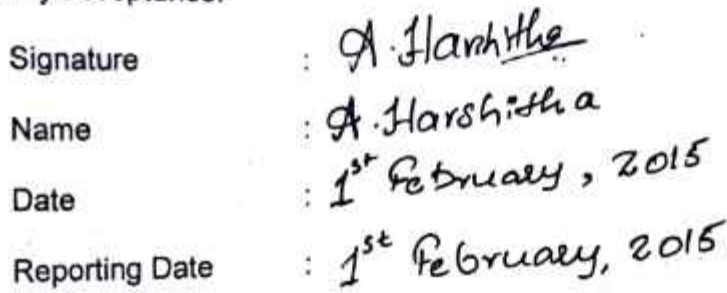 Signature : A. Harshitha
Name : A. Harshitha
Date : 1st February, 2015
Reporting Date : 1st February, 2015